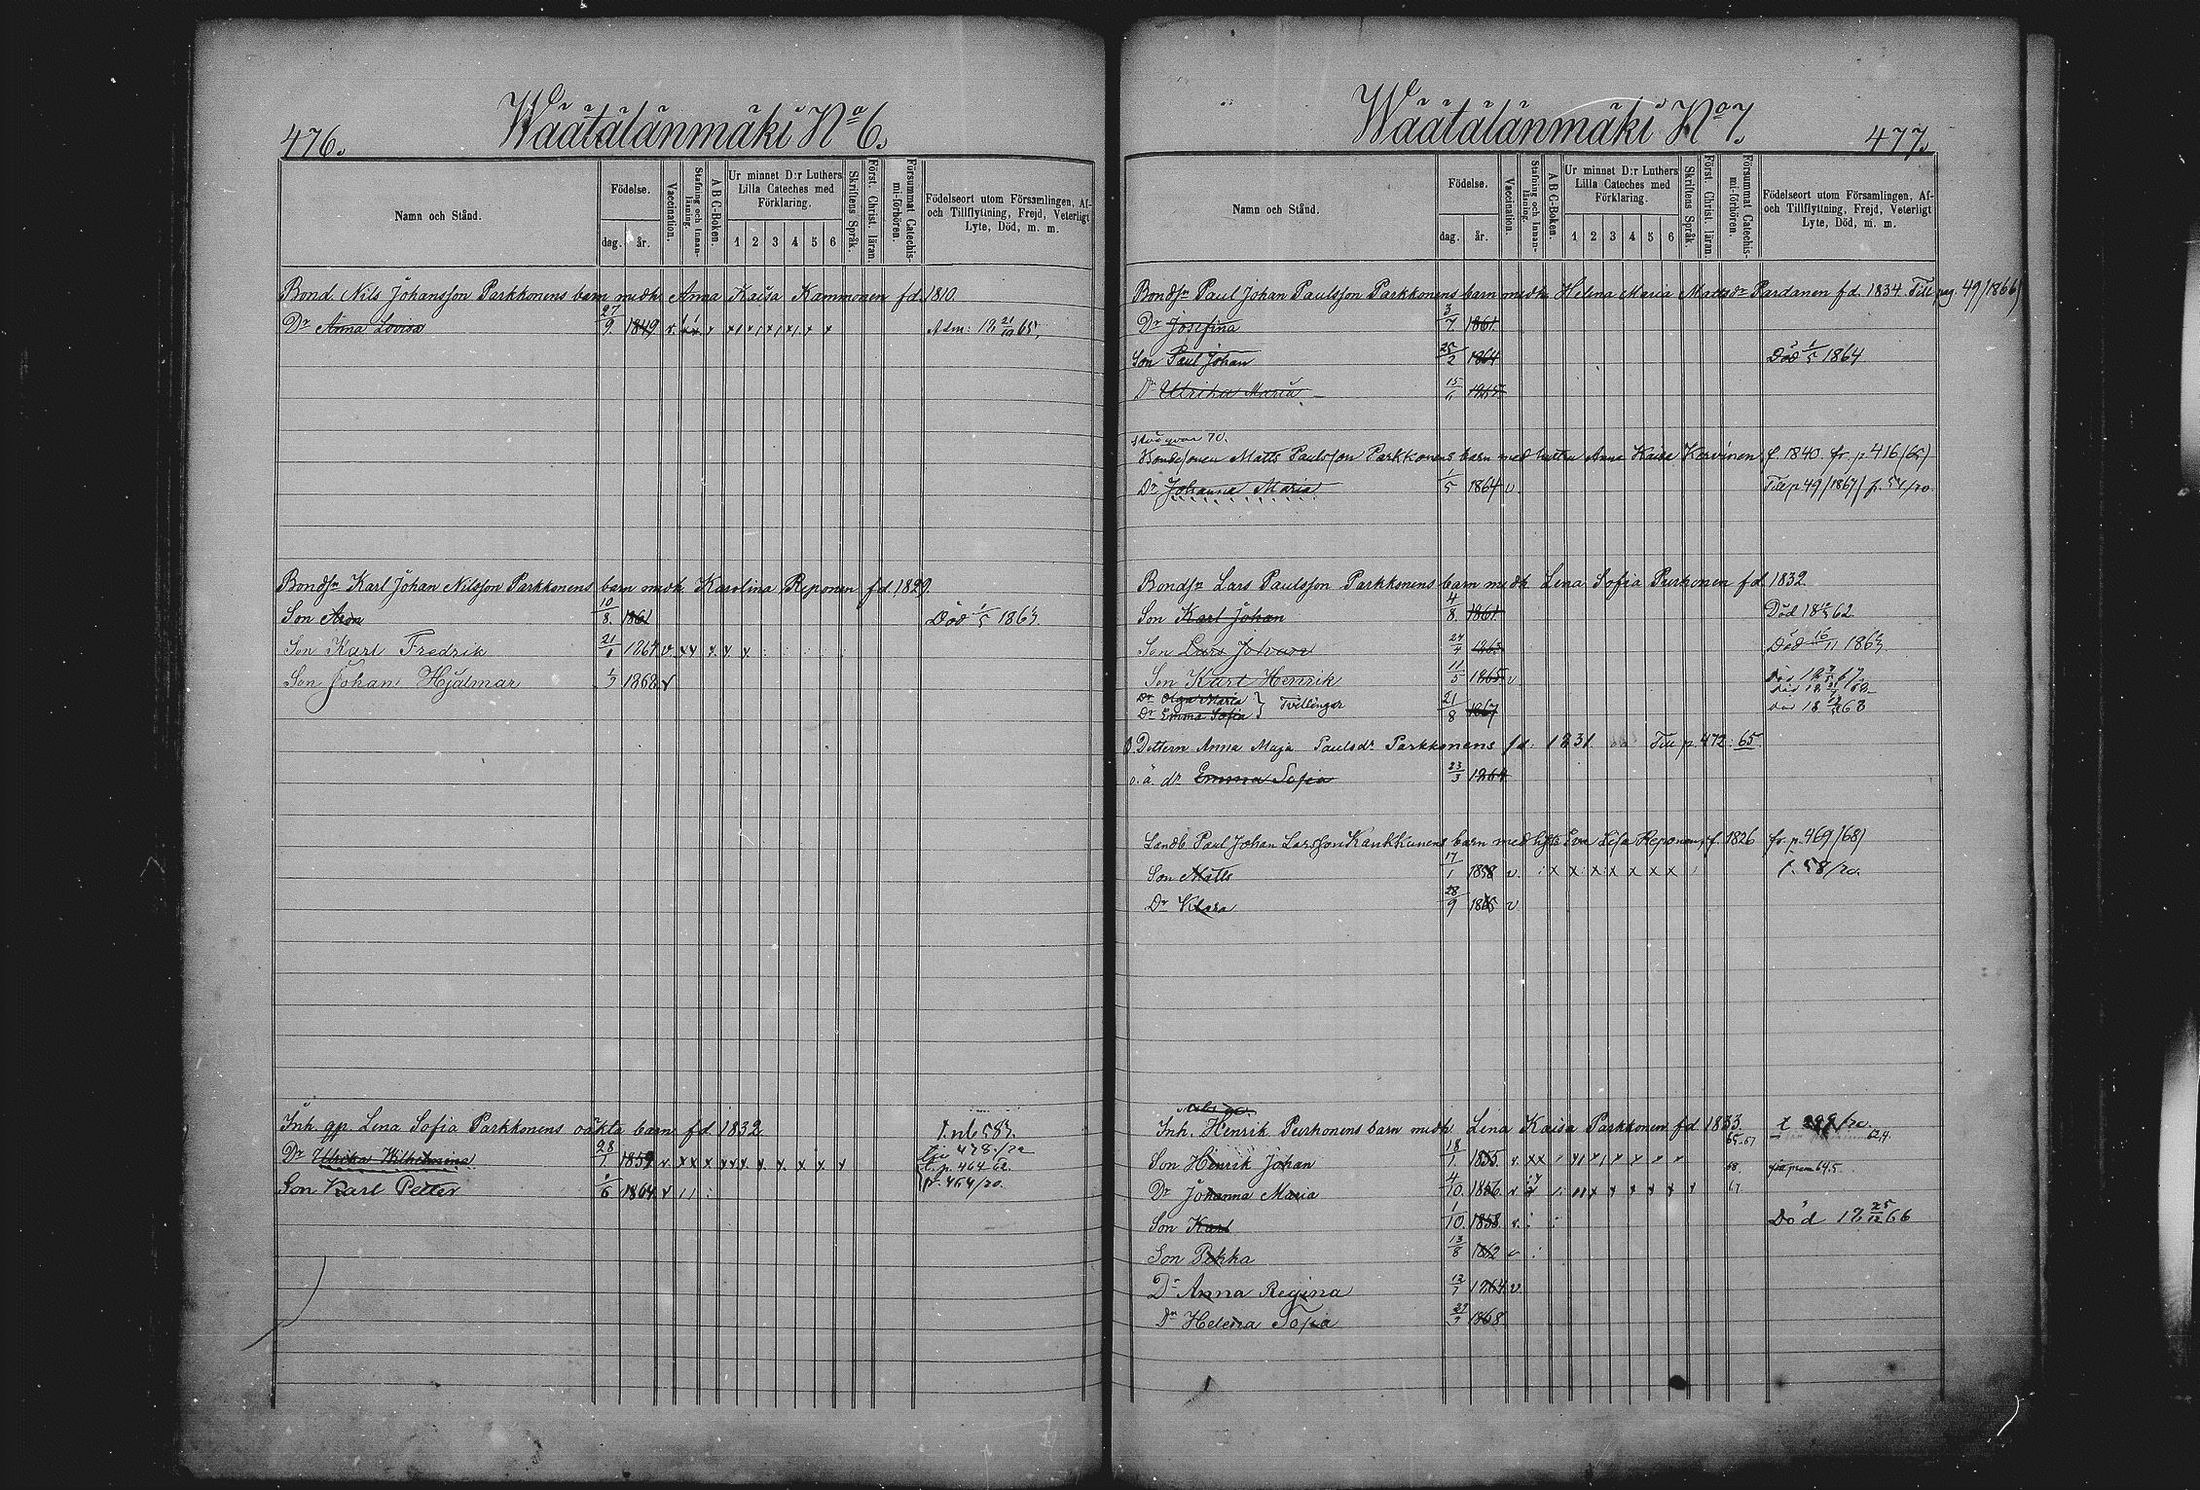 476.
Wäätälänmäki No 6.
Namn och Stånd.
Födelse.
dag.
år.
Vaccination.
Stafning och Innanläsning.
A B C-Boken.
Ur minnet D:r Luthers Lilla Cateches med Förklaring.
1 2 3 4 5 6
Skriftens Språk.
Först. Christ. läran.
Försummat Catechismi-förhören.
Födelseort utom Församlingen, Af- och Tillflyttning, Frejd, Veterligt Lyte, Död, m. m.
Bond. Nils Johansson Parkkonens barn medh. Anna Kaisa Kammonen fd. 1810.
Dr Anna Lovisa 27/9. 1849 Adm: 18 21/10 65.
Bondsn Karl Johan Nilsson Parkkonens barn medh Karolina Reponen fd. 1829.
Son Aron 10/8. 1861 Död 1/5 1863.
Son Karl Fredrik 21/1 1864 v. x x x x x
Son Johan Hjalmar 1868 v
Inh. qp. Lena Sofia Parkkonens oäkta barn fd 1832.
Dr Ulrika Wilhelmina 28/7. 1859 t. p. 464
Son Karl Petter 1/6 1864 v p. 464/70.
Wäätälänmäki No 7.
477.
Namn och Stånd.
Födelse.
dag.
år.
Vaccination.
Stafning och Innanläsning.
A B C-Boken.
Ur minnet D:r Luthers Lilla Cateches med Förklaring.
1 2 3 4 5 6
Skriftens Språk.
Först. Christ. läran.
Försummat Catechismi-förhören.
Födelseort utom Församlingen, Af- och Tillflyttning, Frejd, Veterligt Lyte, Död, m. m.
Bondsn Paul Johan Paulsson Parkkonens barn medh. Helena Maria Mattsdr Pardanen fd. 1834. Till pag. 49/1866)
Dr Josefina 3/7. 1861.
Son Paul Johan 25/2 1864 Död 1/5 1864
Dr Ulrika Maria 15/6 1865
Bondesonen Matts Paulsson Parkkonens barn med hustru Anna Kaisa Kervinen f. 1840. fr. p. 416/65)
Dr Johanna Maria 1/5 1864 v. Till p 49/1867/
Bondsn Lars Paulsson Parkkonens barn medh Lena Sofia Purhonen fd. 1832.
Son Karl Johan 4/8. 1861. Död 18 62
Son Lars Johan 1863 Död 16/11 1863.
Son Karl Henrik 11/5 1865 v
Dr Olga Maria } Tvillingar
Dr Emma Sofia 21/8 1867
Dottern Anna Maja Paulsdr Parkkonens fd: 1831. Till p. 472: 65.
o. ä. dr Emma Sofia 23/3 1864
Landb. Paul Johan Larsson Kaukkunens barn med hust Eva Lisa Reponen, f. 1826 fr. p. 469/68)
Son Matts 17/1 1858 v. x x x x x x x f. 58/70.
Dr Klara 28/9 1865 v
Inh. Henrik Purhonens barn medh Lena Kaisa Parkkonen fd 1833.
Son Henrik Johan 18/1. 1855.
Dr Johanna Maria 4/10. 1856
Son Karl 1/10. 1858 Död 18 25/12 66
Son Pekka 13/8 1862 v
Dr Anna Regina 12/7 1864 v
Dr Helena Sofia 1868